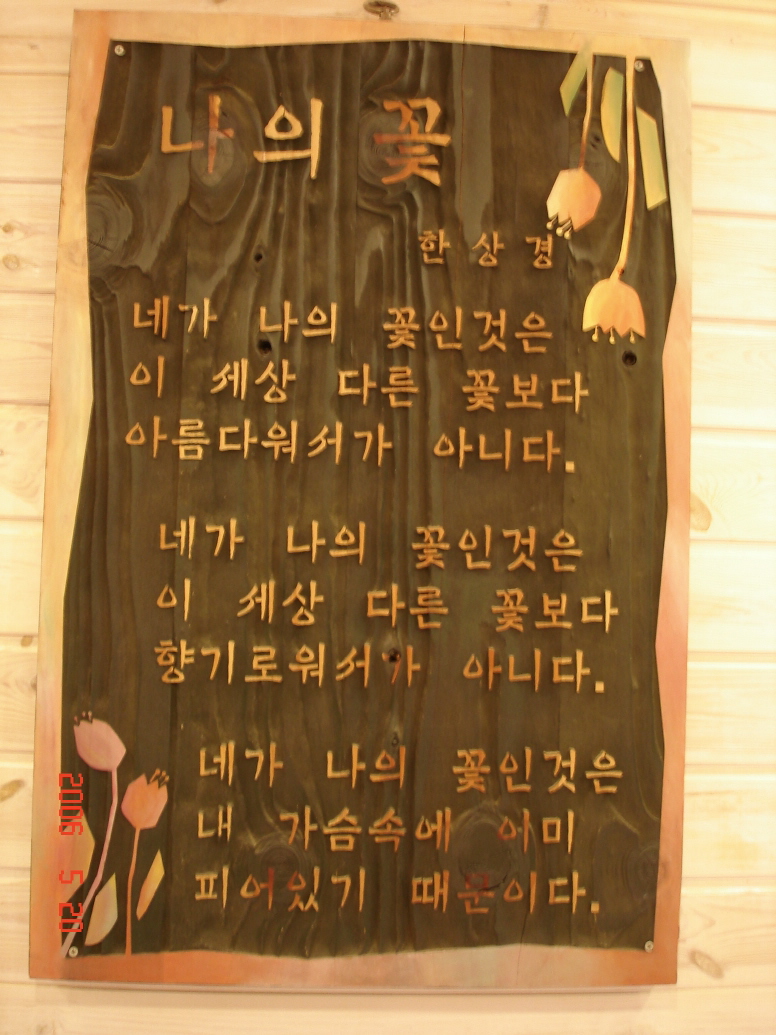 나의 꽃
한상경
네가 나의 꽃인것은
이 세상 다른 꽃보다
아름다워서가 아니다.
네가 나의 꽃인것은
이 세상 다른 꽃보다
향기로워서가 아니다.
네가 나의 꽃인것은
내 가슴속에 이미
피어있기 때문이다.
2006 5 20